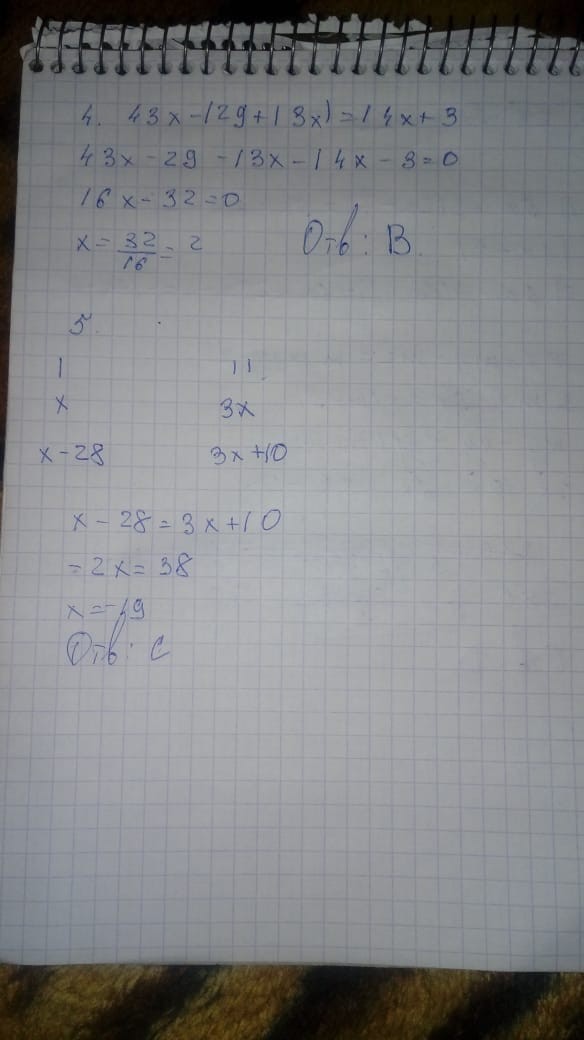 4. 43x-(29+13x)=14x+3
43x-29-13x-14x-3=0
16x-32=0
x=32/16=2
Отв: B.
5.
I II
x 3x
x-28 3x+10
x-28=3x+10
=2x=38
x=-19
Отв: C